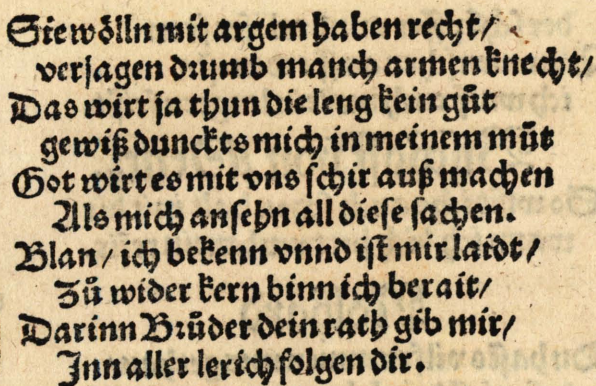 Sie wölln mit argem haben recht/
verjagen drumb manch armen knecht/
Das wirt ja thun die leng kein gůt
gewiß dunckts mich in meinem můt
Got wirt es mit vns schir auß machen
Als mich ansehn all diese sachen.
Blan/ ich bekenn vnnd ist mir laidt/
Zů wider kern binn ich berait/
Darinn Brůder dein rath gib mir/
Inn aller ler ich folgen dir.